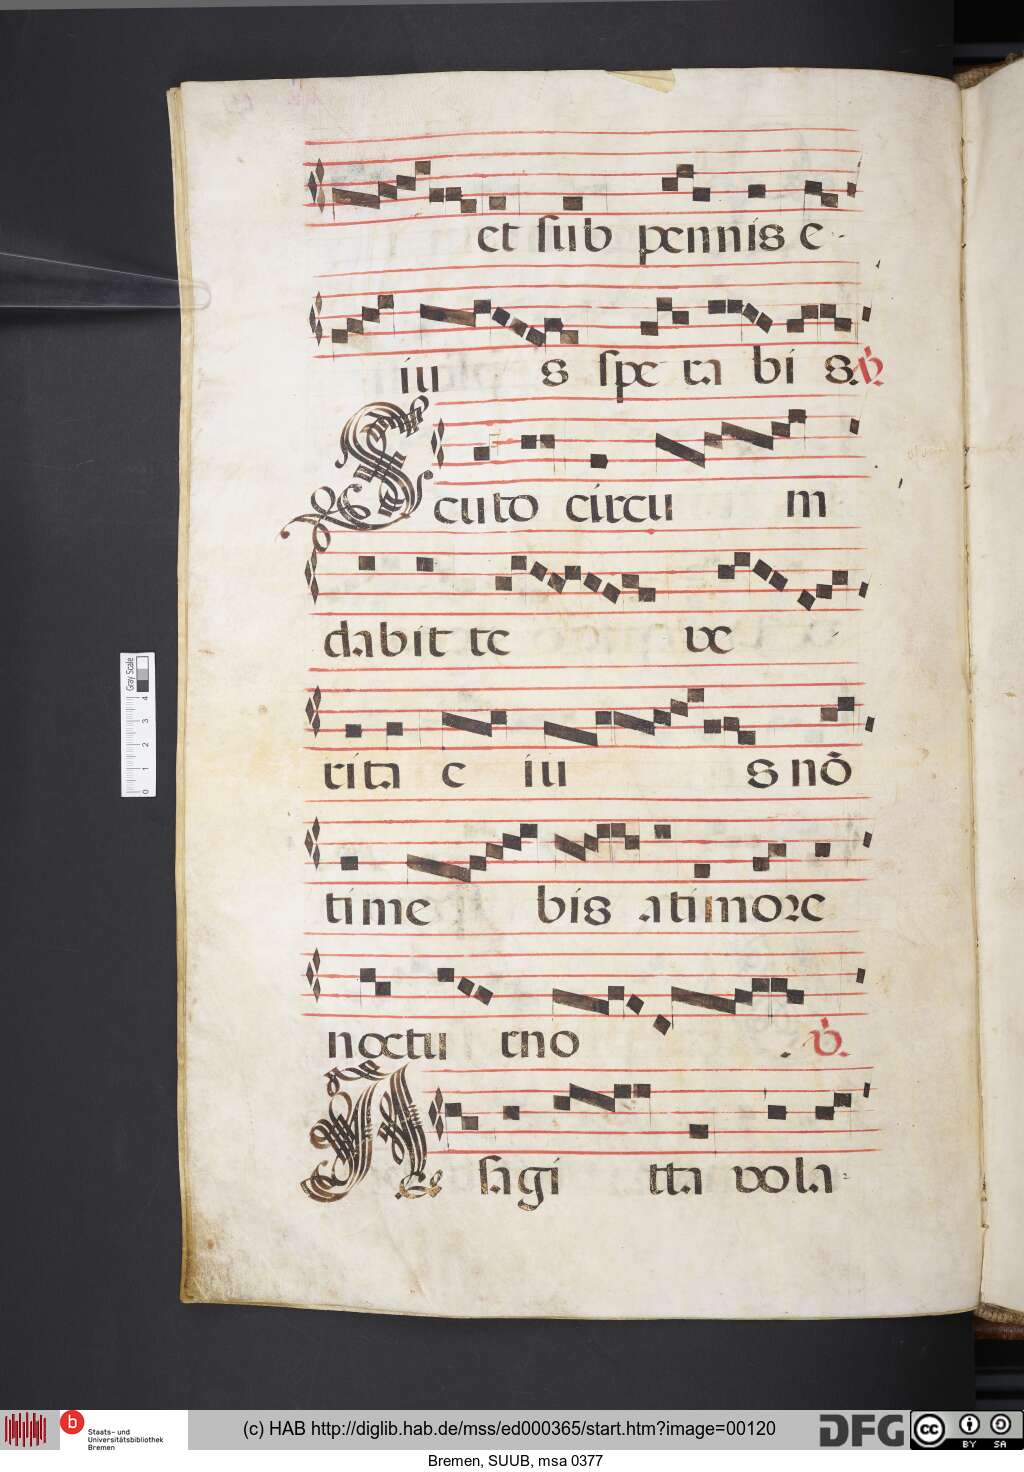 et sub pennis e-
iu s spe ra bi s. ℟.
Scuto circu m
dabit te ve
rita e iu s nō
time bis a timore
noctu rno . ℣.
A sagi tta vola-
Gray Scale
0 1 2 3 4
b
Staats- und
Universitätsbibliothek
Bremen
(c) HAB http://diglib.hab.de/mss/ed000365/start.htm?image=00120
DFG
cc BY SA
Bremen, SUUB, msa 0377